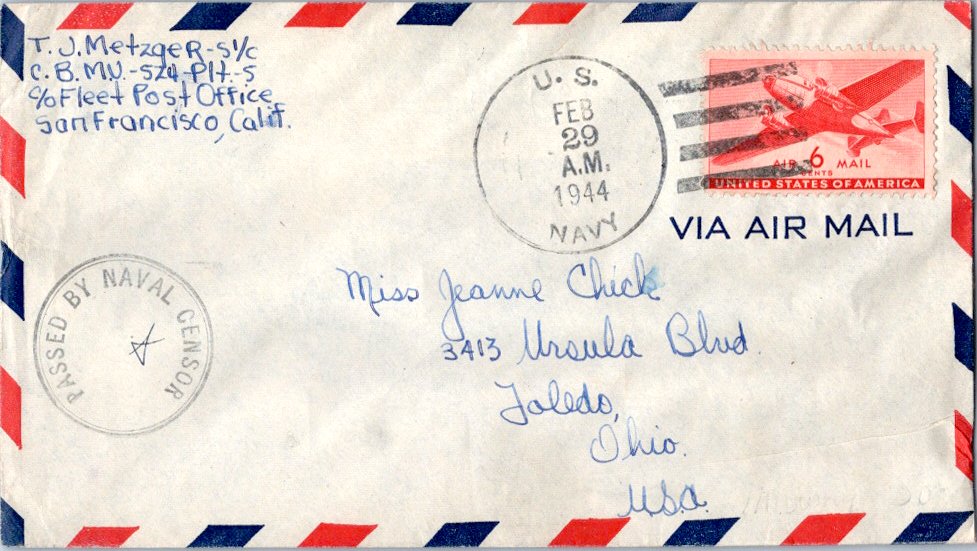 T. J. Metzger-S1/c
C.B.M.U.-524-Plt.-5
c/o Fleet Post Office
San Francisco, Calif.
U. S.
FEB
29
A.M.
1944
NAVY
AIR 6 MAIL
CENTS
UNITED STATES OF AMERICA
VIA AIR MAIL
PASSED BY NAVAL CENSOR
Miss Jeanne Chick
3413 Ursula Blvd.
Toledo,
Ohio.
U.S.A.